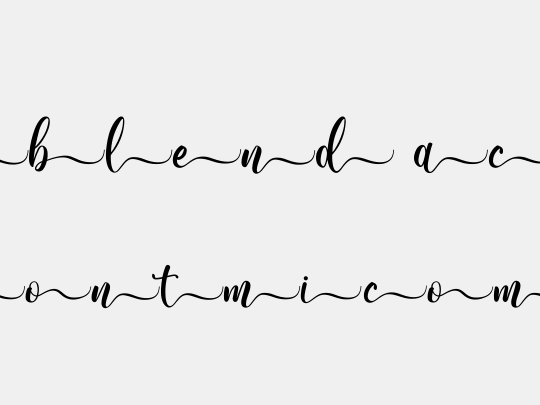 blend ac
ontmicom